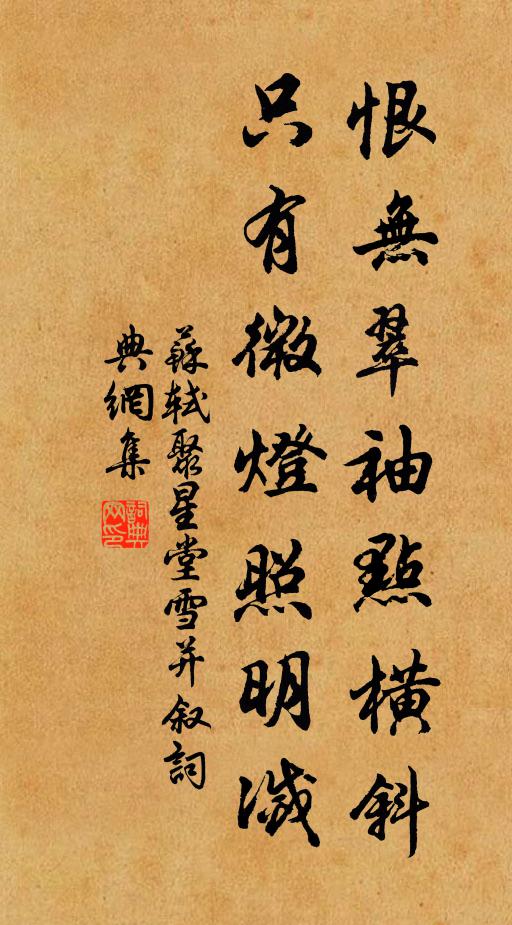 恨無翠袖點橫斜
只有微燈照明滅
蘇軾聚星堂雪并敘詞
典網集
詞典网印